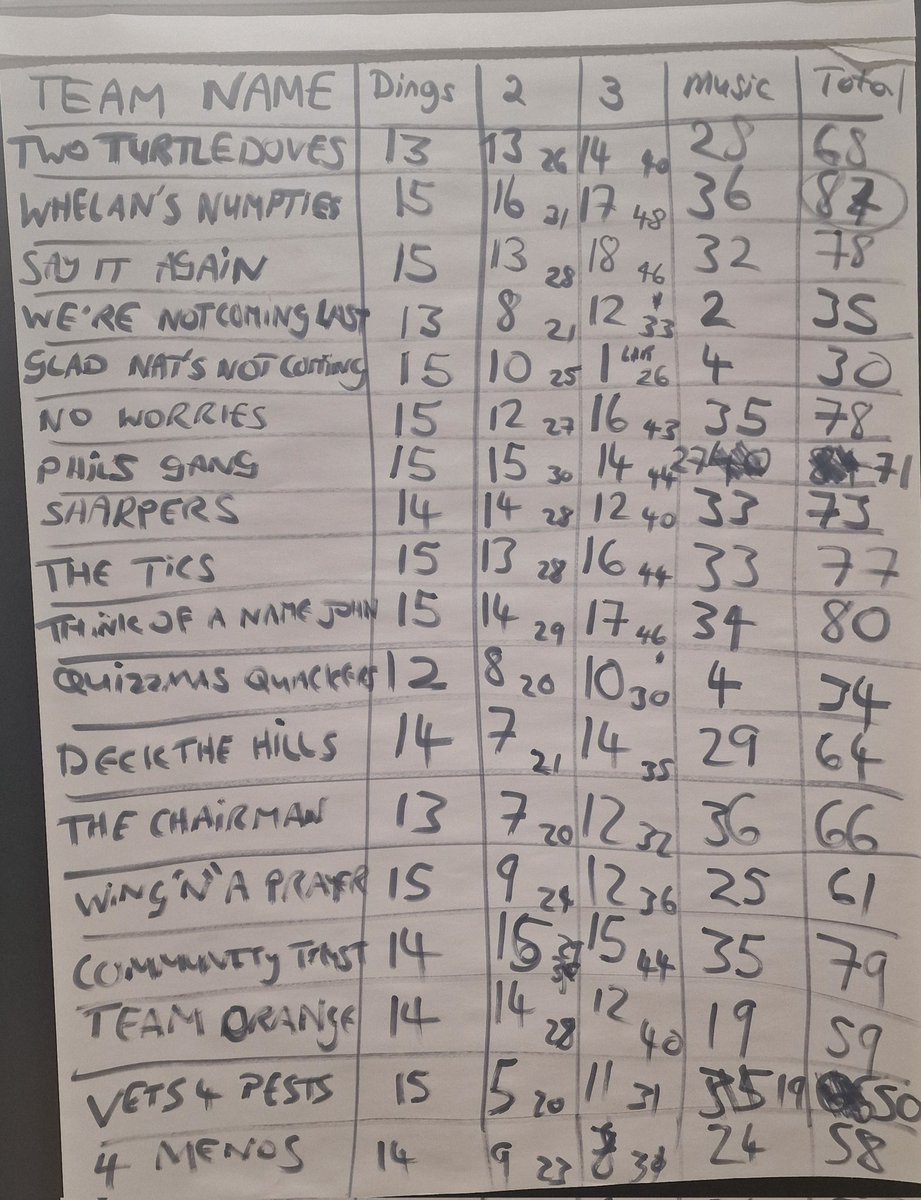 TEAM NAME Dings 2 3 Music Total
TWO TURTLEDOVES 13 13 26 14 40 28 68
WHELAN'S NUMPTIES 15 16 31 17 48 36 84
SAY IT AGAIN 15 13 28 18 46 32 78
WE'RE NOT COMING LAST 13 8 21 12 33 2 35
GLAD NAT'S NOT COMING 15 10 25 1 26 4 30
NO WORRIES 15 12 27 16 43 35 78
PHILS GANG 15 15 30 14 44 27 71
SHARPERS 14 14 28 12 40 33 73
THE TICS 15 13 28 16 44 33 77
THINK OF A NAME JOHN 15 14 29 17 46 34 80
QUIZZMAS QUACKERS 12 8 20 10 30 4 34
DECK THE HILLS 14 7 21 14 35 29 64
THE CHAIRMAN 13 7 20 12 32 36 66
WING 'N' A PRAYER 15 9 24 12 36 25 61
COMMUNITY TRUST 14 15 15 44 35 79
TEAM ORANGE 14 14 28 12 40 19 59
VETS 4 PESTS 15 5 20 11 31 19 50
4 MENOS 14 9 23 24 58